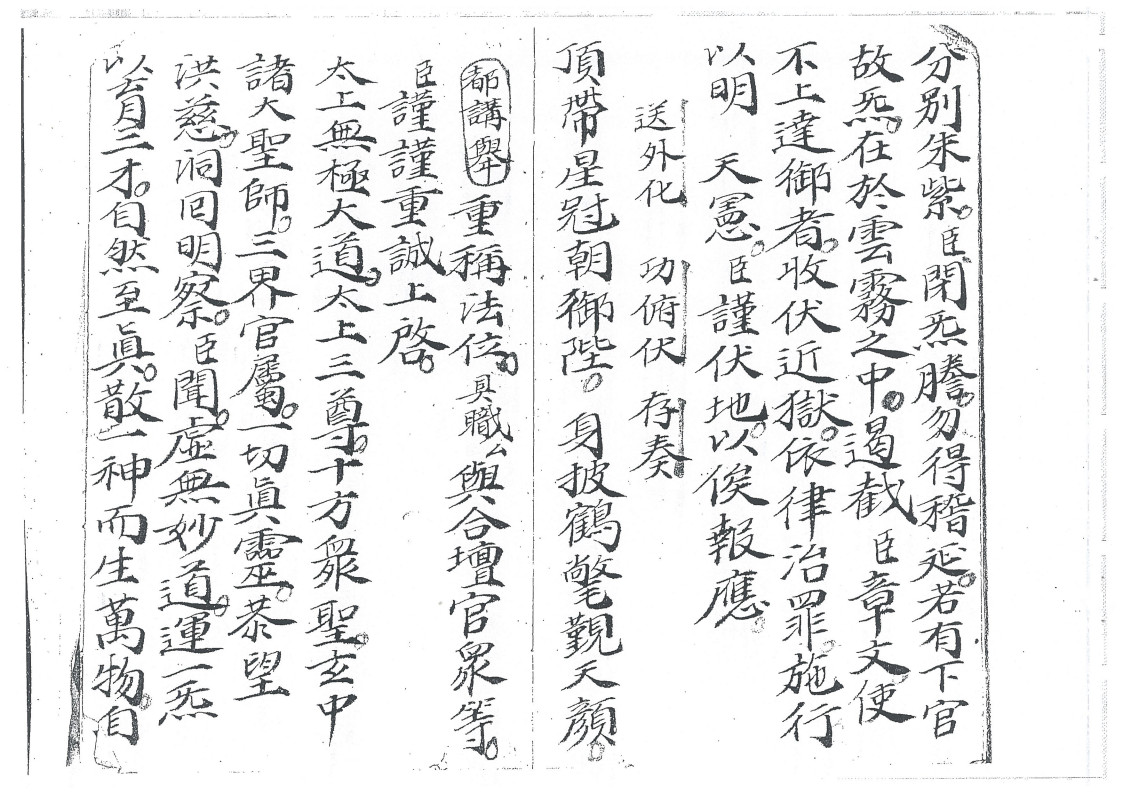 分別朱紫。臣閉炁謄。勿得稽延。若有下官
故炁。在於雲霧之中。遏截臣章文。使
不上達御者。收伏近獄。依律治罪。施行
以明　天憲。臣謹伏地。以俟報應。
送外化　功俯伏　存奏
頂帶星冠朝御陛。身披鶴氅覲天顏。
都講舉　重稱法位。具職厶與合壇官眾等。
臣謹謹重誠上啓。
太上無極大道。太上三尊。十方眾聖。玄中
諸大聖師。三界官屬。一切真靈。恭望
洪慈。洞回明察。臣聞。虛無妙道。運一炁
以育三才。自然至真。散一神而生萬物。自